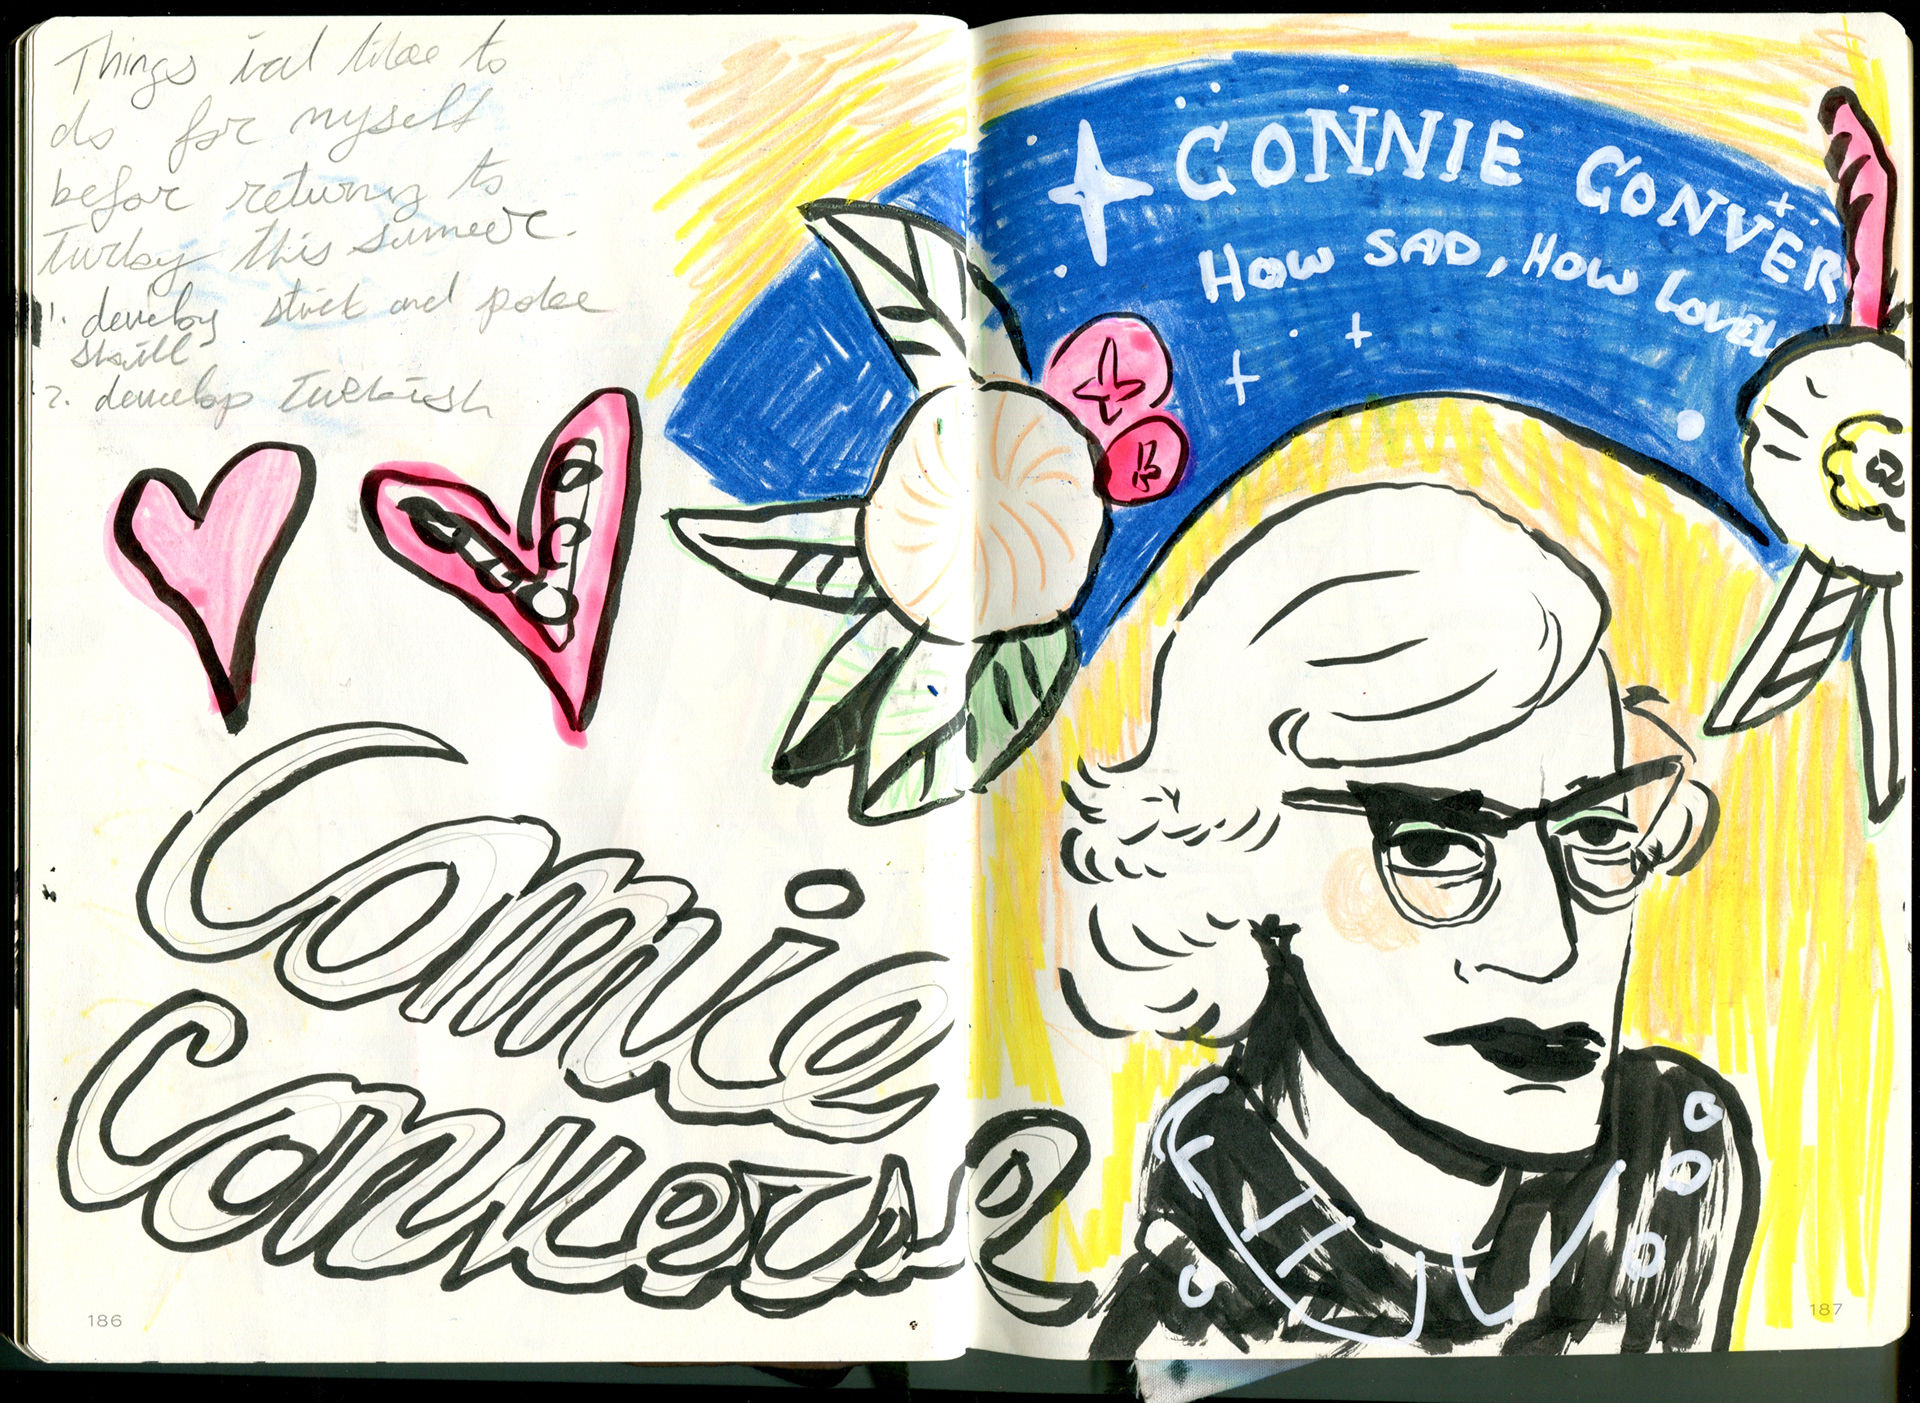 Things ial like to
do for myself
befor returng to
Turkey this sumeer.
1. develop stick and poke
skill
2. develop Turkish
CONNIE CONVER
HOW SAD, HOW LOVEL
Connie
Converse
186
187